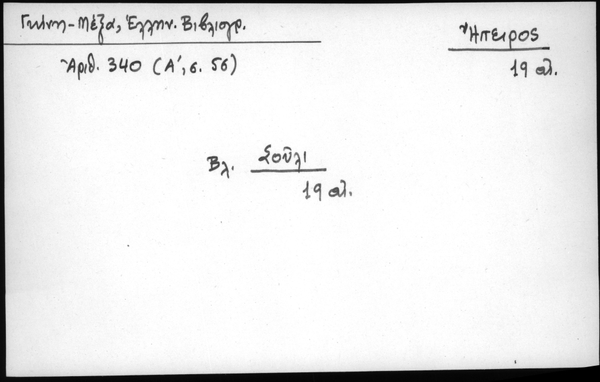 Γκίνη-Μέξα, Ἑλλην. Βιβλιογρ.
Ἀριθ. 340 (Α΄, σ. 56)
Ἤπειρος
19 αἰ.
Βλ. Σοῦλι
19 αἰ.